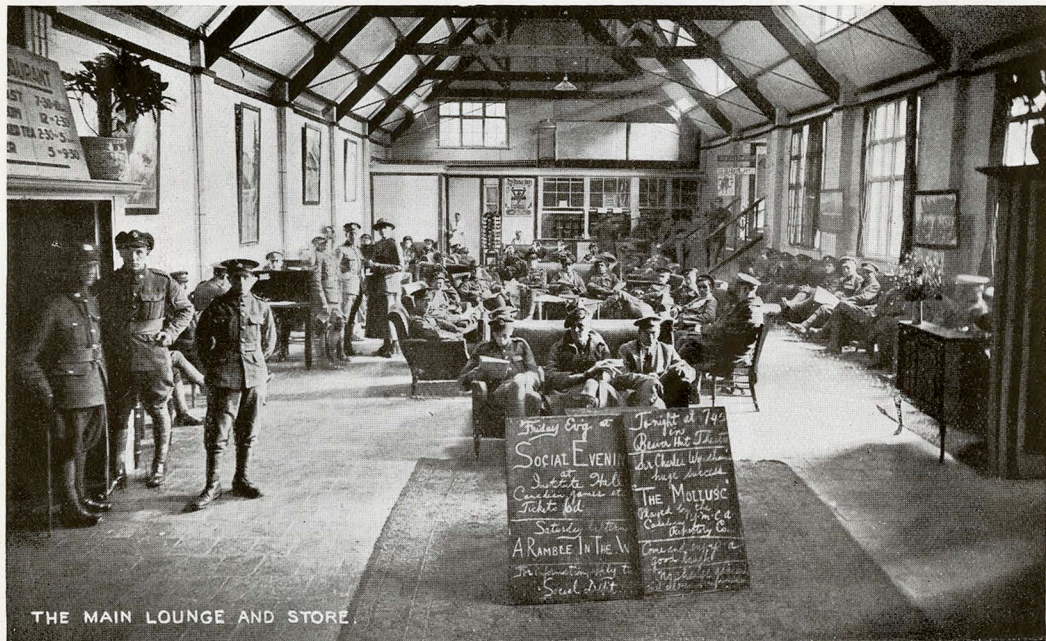 AURANT
7-30-
12-2-
TEA 2-30-5
5-9-30
Friday Ev'g at
SOCIAL EVENIN
at
Institute Hall
Canadian games etc
Tickets 6d
Saturday
A RAMBLE IN THE W
For information apply t
Social Dept
Tonight at 7.45
in
Beaver Hut Theatre
Sir Charles Wyndham
huge success
"THE MOLLUSC"
Played by the
Canadian Y.M.C.A
Repertory Co.
Come and enjoy a
good laugh
THE MAIN LOUNGE AND STORE.